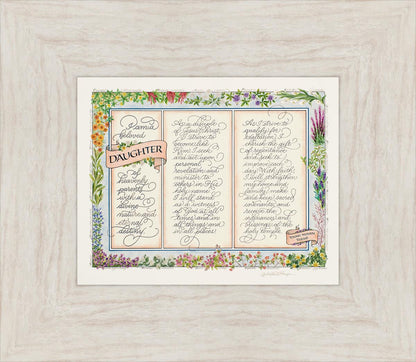 I am a
beloved
DAUGHTER
of
heavenly
parents
with a
divine
nature and
eternal
destiny.
As a disciple
of Jesus Christ,
I strive to
become like
Him. I seek
and act upon
personal
revelation and
minister to
others in His
holy name.
I will stand
as a witness
of God at all
times and in
all things and
in all places.
As I strive to
qualify for
exaltation, I
cherish the gift
of repentance
and seek to
improve each
day. With faith,
I will strengthen
my home and
family, make
and keep sacred
covenants, and
receive the
ordinances and
blessings of the
holy temple.